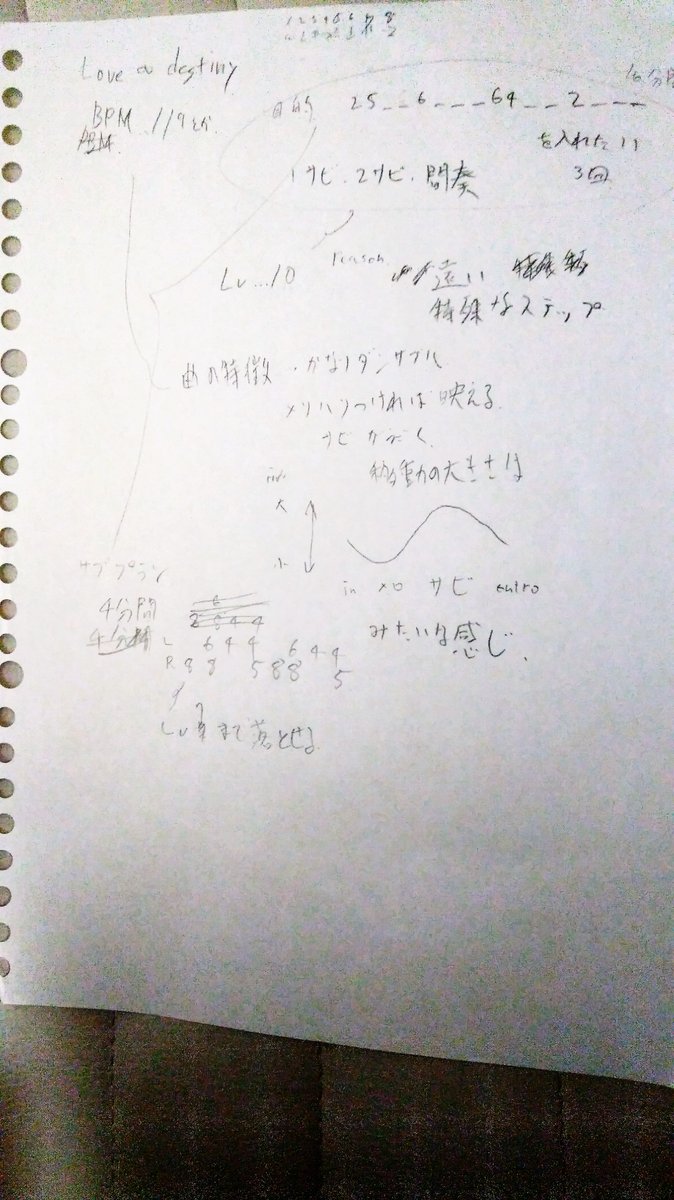 1 2 3 4 5 6 7 8
Love a destiny
16分
目的 25__6___64__2___
BPM 117とか
を入れたい
1サビ、2サビ、間奏 3回
Lv...10 reason 速い
特殊なステップ
曲の特徴・かなりダンサブル
メリハリつければ映える。
サビがぞく
移動の大きさは
大
小
in メロ サビ outro
みたいな感じ、
サブプラン
4分間
L 6 4 4 6 4 4
R 8 8 5 8 8 5
Lv まで落とせる